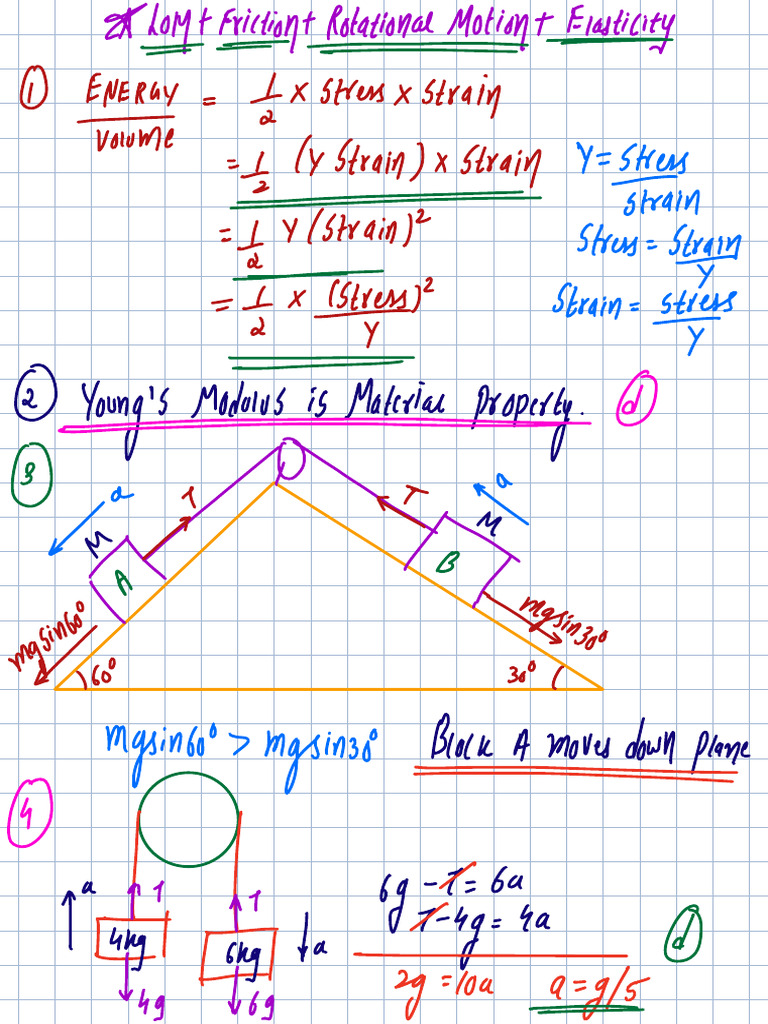 LOM + Friction + Rotational Motion + Elasticity
① ENERGY / Volume = 1/2 × Stress × Strain
= 1/2 (Y Strain) × Strain
Y = Stress / Strain
= 1/2 Y (Strain)²
Stress = Strain / Y
= 1/2 × (Stress)² / Y
Strain = Stress / Y
② Young's Modulus is Material Property. d
③
a T T a
M A B M
mgsin60° mgsin30°
60° 30°
mgsin60° > mgsin30° Block A moves down plane
④
a T T
4kg 6kg a
4g 6g
6g - T = 6a
T - 4g = 4a
d
2g = 10a a = g/5